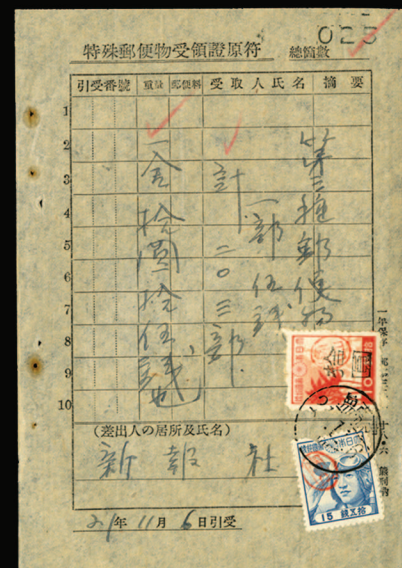 025
特殊郵便物受領證原符
總箇數
引受番號 重量 郵便料 受取人氏名 摘要
1
2
3
4
5
6
7
8
9
10
第三種郵便物
一部 伍銭
計 二〇三部
一金 拾圓拾伍銭也
(差出人の居所及氏名)
新報社
21年11月6日引受
10
15 銭五拾